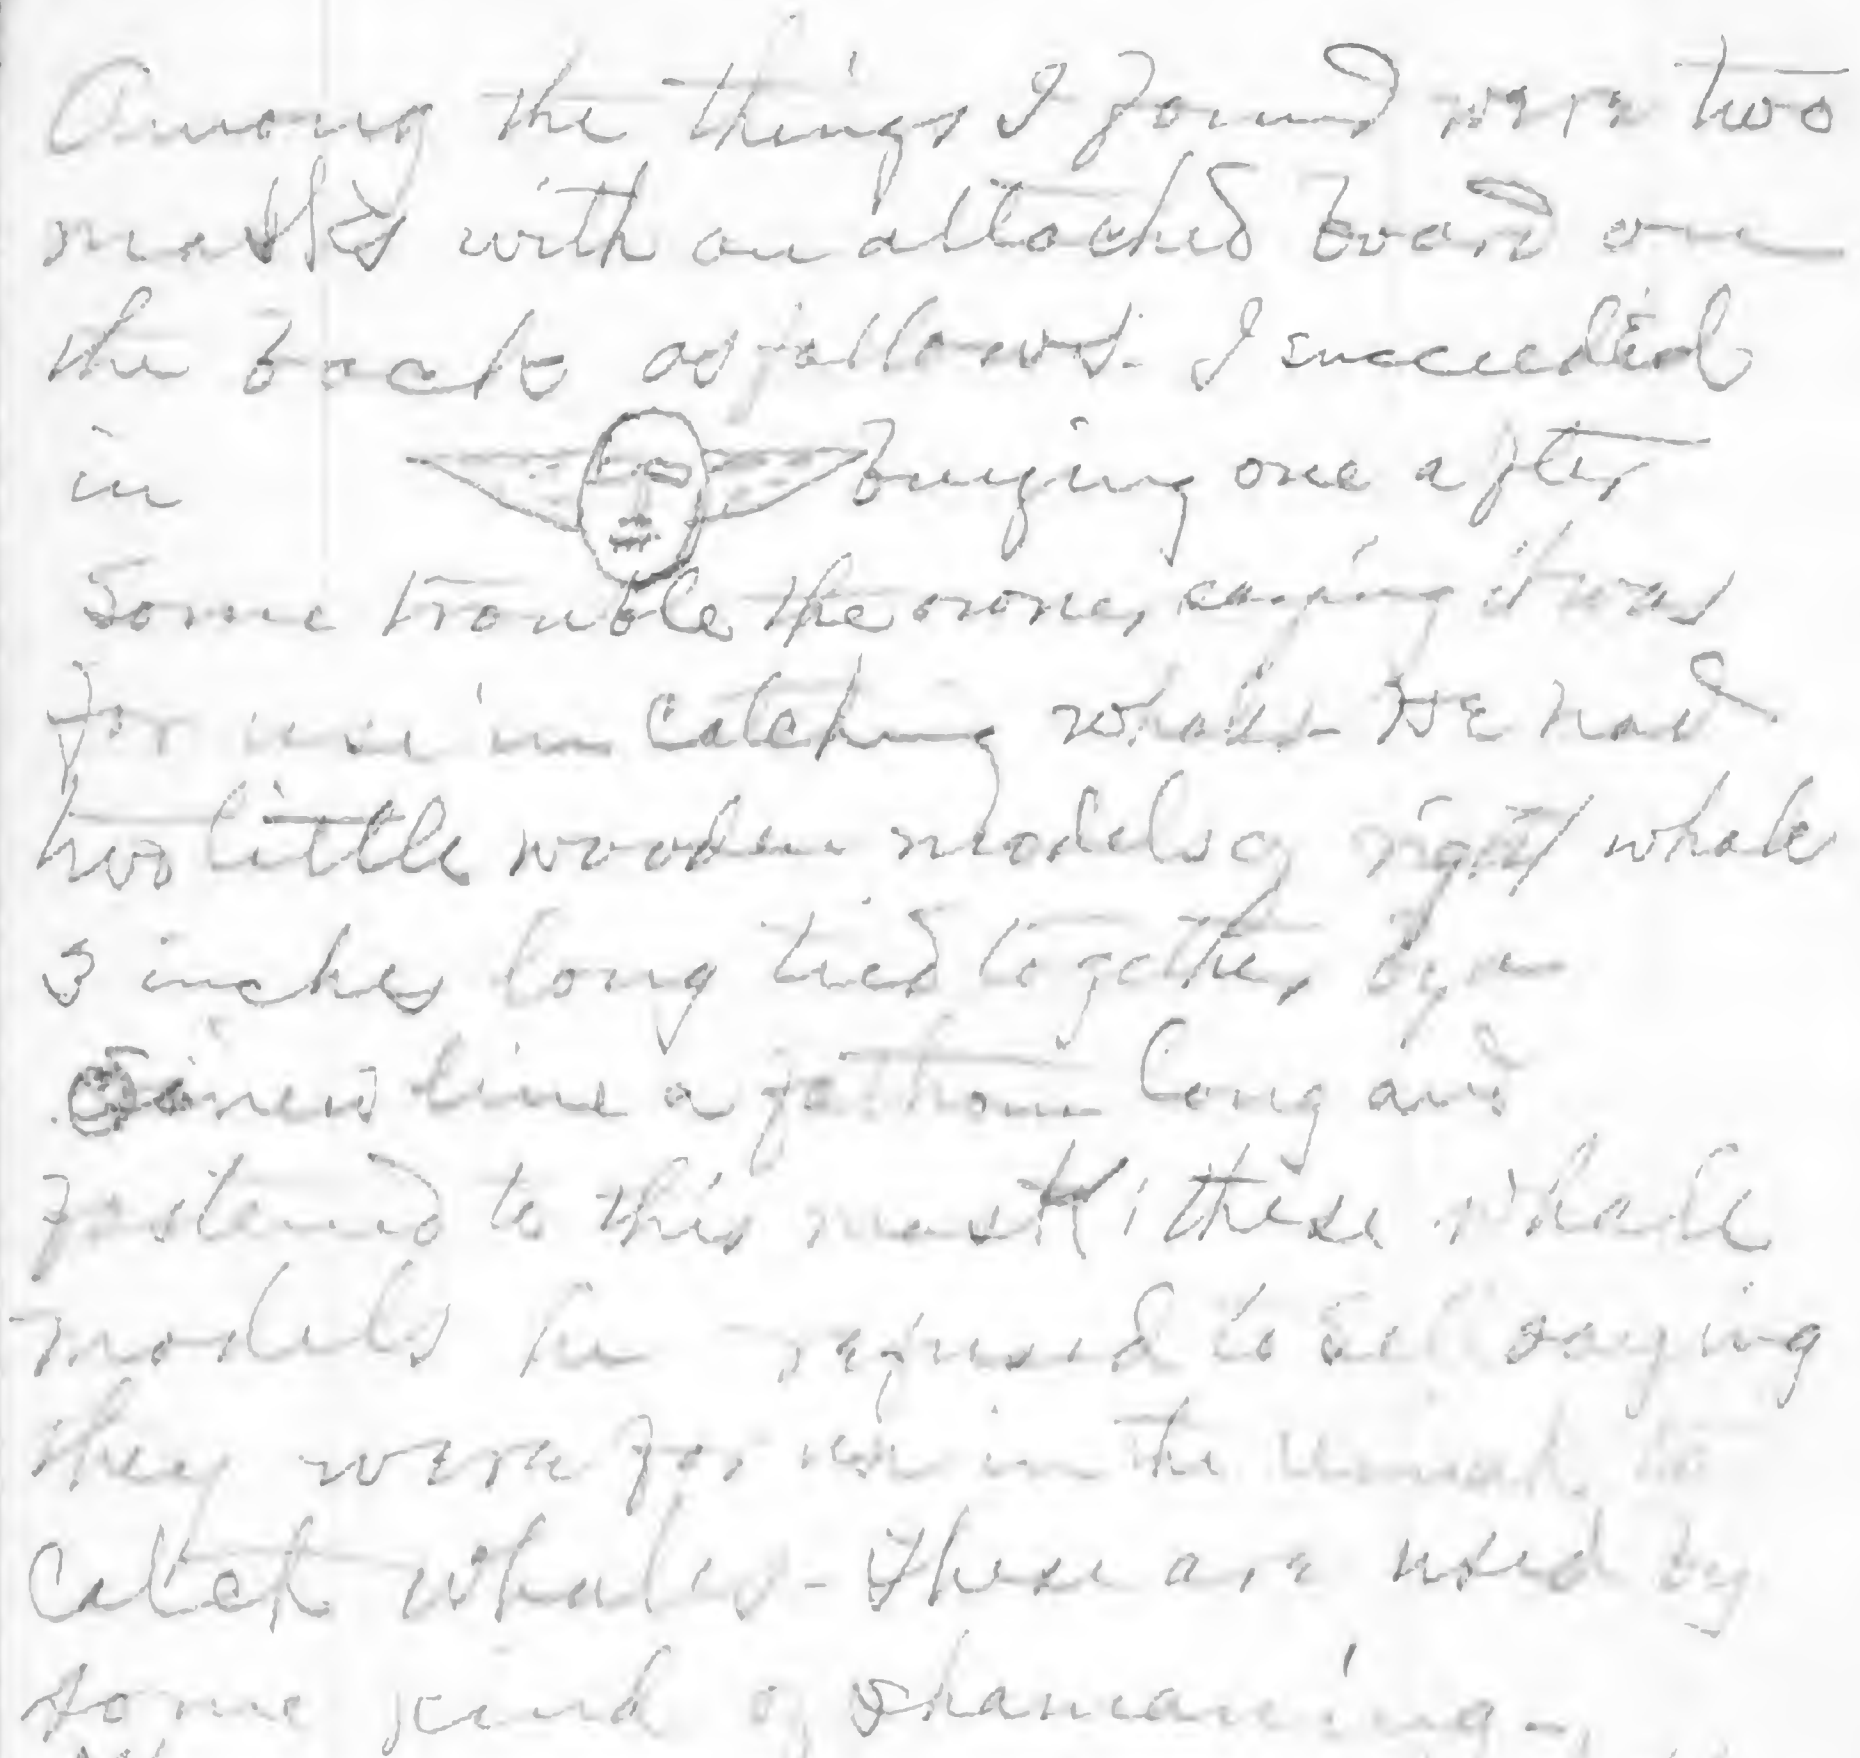 Among the things I found were two
masks with an attached board on
the back as follows. I succeeded
in buying one after
Some trouble the owner saying it was
for use in catching whales - He had
two little wooden models of right whale
3 inches long tied together by a
Sinew line a fathom long and
fastened to this mask; these whale
models he refused to sell saying
they were for use in the to
catch whales - These are used by
some kind of shamaning -